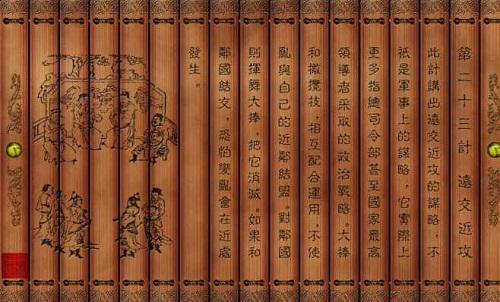 第二十三計 遠交近攻
此計講出遠交近攻的謀略，不
祇是軍事上的謀略，它實際上
更多指總司令部甚至國家最高
領導者采取的政治戰略。大棒
和橄欖枝，相互配合運用，不使
亂與自己的近鄰結盟。對鄰國
則揮舞大棒，把它消滅。如果和
鄰國結交，恐怕變亂會在近處
發生。